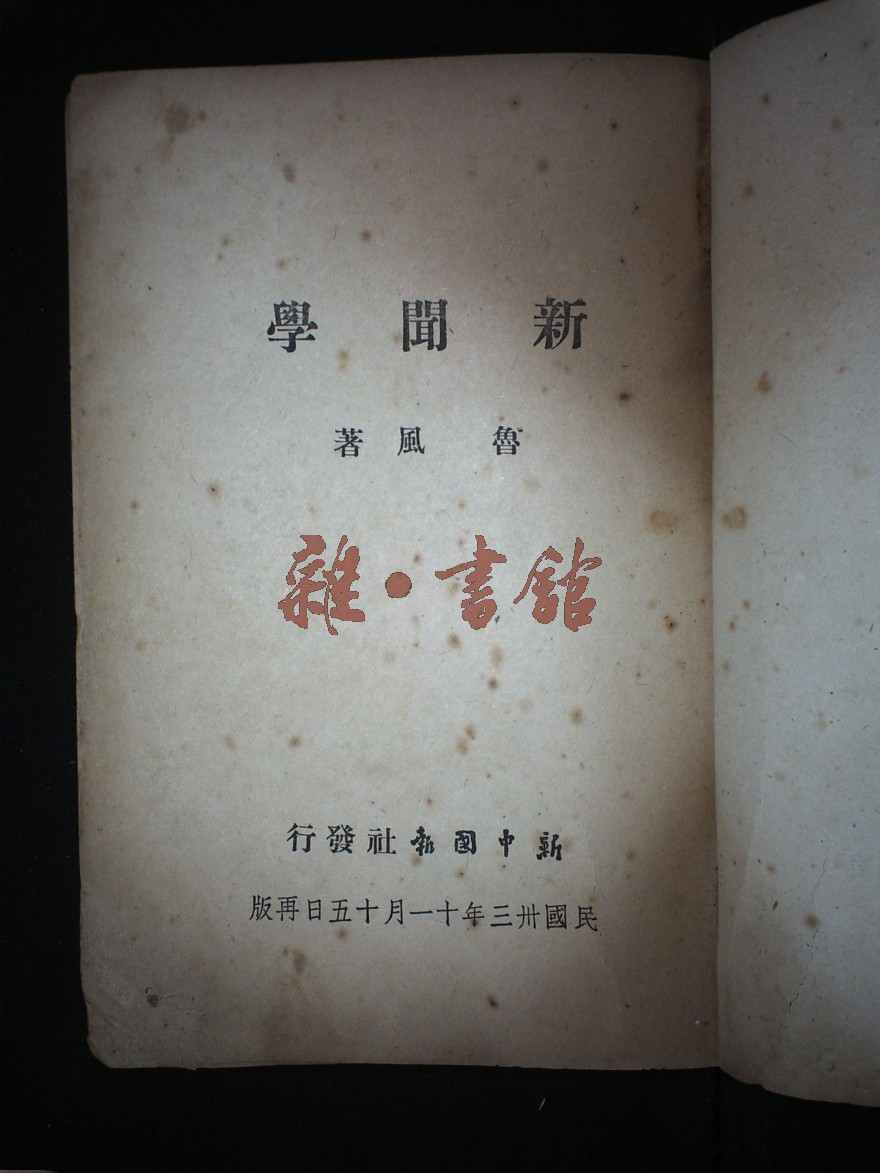 新聞學
魯風著
雜·書館
新中國報社發行
民國卅三年十一月十五日再版